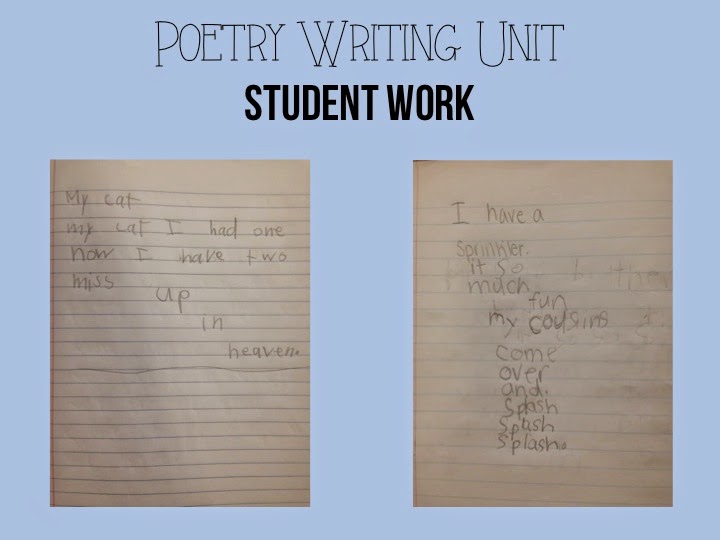 POETRY WRITING UNIT
STUDENT WORK
My cat
my cat I had one
now I have two
miss
up
in
heaven.
I have a
sprinkler.
it so
much
fun
my cousins
come
over
and.
Splash
Splash
Splash.